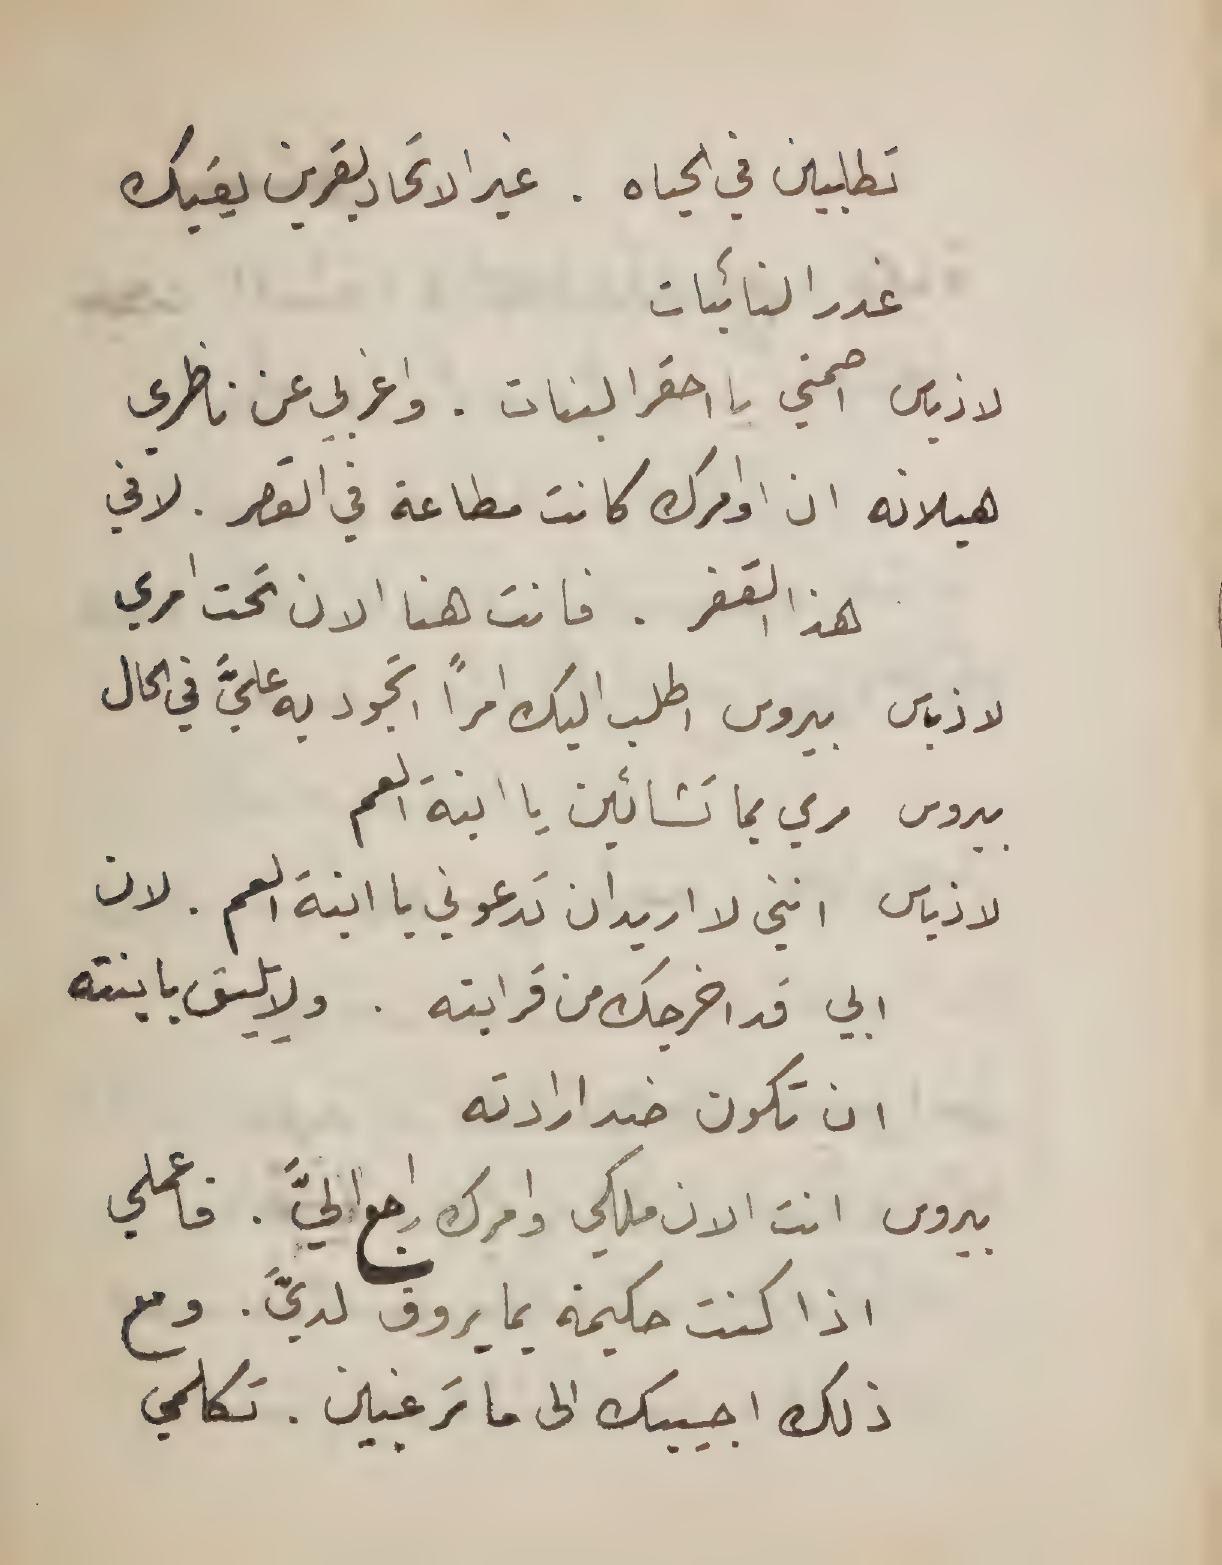 تطلبين في الحياه . غير الاتحاد بقرين يقيك
غدر النائبات
لاذياس اصمتي يا احقر البنات . واغربي عن ناظري
هيلانه ان اوامرك كانت مطاعة في القصر . لا في
هذا القفر . فانت هنا الان تحت امري
لاذياس بيروس اطلب اليك امرًا اتجود به عليَّ في الحال
بيروس مري بما تشائين يا ابنة العم
لاذياس انني لا اريد ان تدعوني يا ابنة العم . لان
ابي قد اخرجك من قرابته . ولا يليق بابنته
ان تكون ضد ارادته
بيروس انت الان ملكي وامرك راجع اليَّ . فاعملي
اذا كنت حكيمة بما يروق لديَّ . ومع
ذلك اجيبك الى ما ترغبين . تكلمي